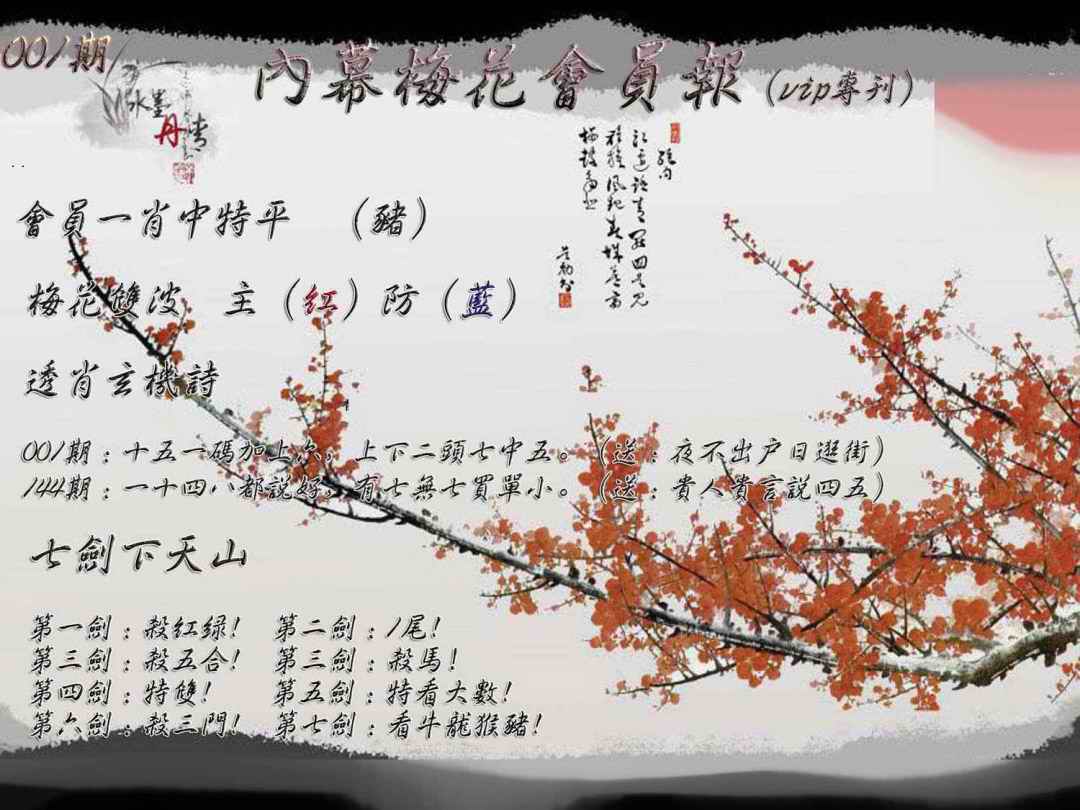 001期
內幕梅花會員報(vip專刊)
水墨
丹青
會員一肖中特平 (豬)
梅花雙波 主(紅)防(藍)
透肖玄機詩
001期:十五一碼加上六,上下二頭七中五。(送:夜不出户日逛街)
144期:一十四八都説好,有七無七買單小。(送:貴人貴言説四五)
七劍下天山
第一劍:殺紅绿! 第二劍:1尾!
第三劍:殺五合! 第三劍:殺馬!
第四劍:特雙! 第五劍:特看大數!
第六劍:殺三門! 第七劍:看牛龍猴豬!